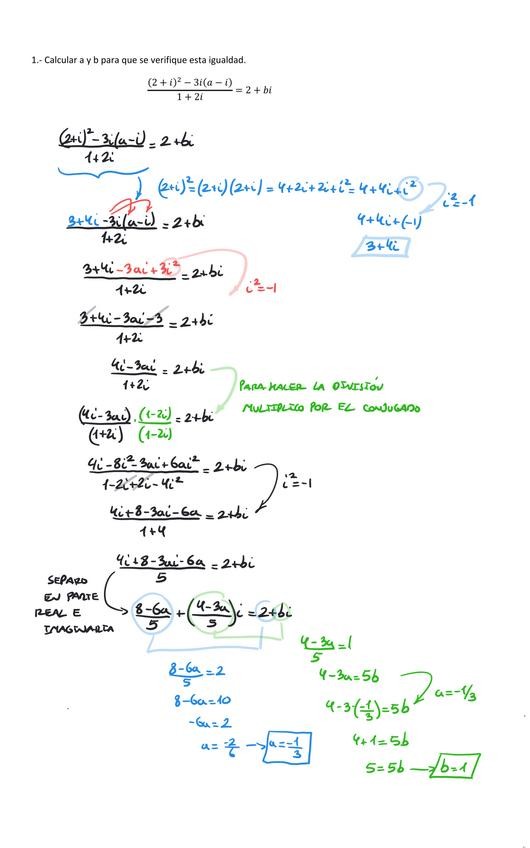 1.- Calcular a y b para que se verifique esta igualdad.
(2 + i)² − 3i(a − i) / 1 + 2i = 2 + bi
(2+i)² − 3i(a−i) / 1+2i = 2+bi
(2+i)² = (2+i)(2+i) = 4+2i+2i+i² = 4+4i+i²
i²=-1
3+4i − 3i(a−i) / 1+2i = 2+bi
4+4i+(-1)
3+4i
3+4i − 3ai + 3i² / 1+2i = 2+bi
i²=-1
3+4i−3ai−3 / 1+2i = 2+bi
4i−3ai / 1+2i = 2+bi
PARA HACER LA DIVISIÓN
MULTIPLICO POR EL CONJUGADO
(4i−3ai) / (1+2i) · (1−2i) / (1−2i) = 2+bi
4i−8i²−3ai+6ai² / 1−2i+2i−4i² = 2+bi
i²=-1
4i+8−3ai−6a / 1+4 = 2+bi
4i+8−3ai−6a / 5 = 2+bi
SEPARO
EN PARTE
REAL E
IMAGINARIA
8−6a / 5 + (4−3a / 5) i = 2+bi
8−6a / 5 = 2
8−6a=10
-6a=2
a= -2/6 → a= -1/3
4−3a / 5 = b
4−3a=5b
a=-1/3
4−3·(-1/3)=5b
4+1=5b
5=5b → b=1